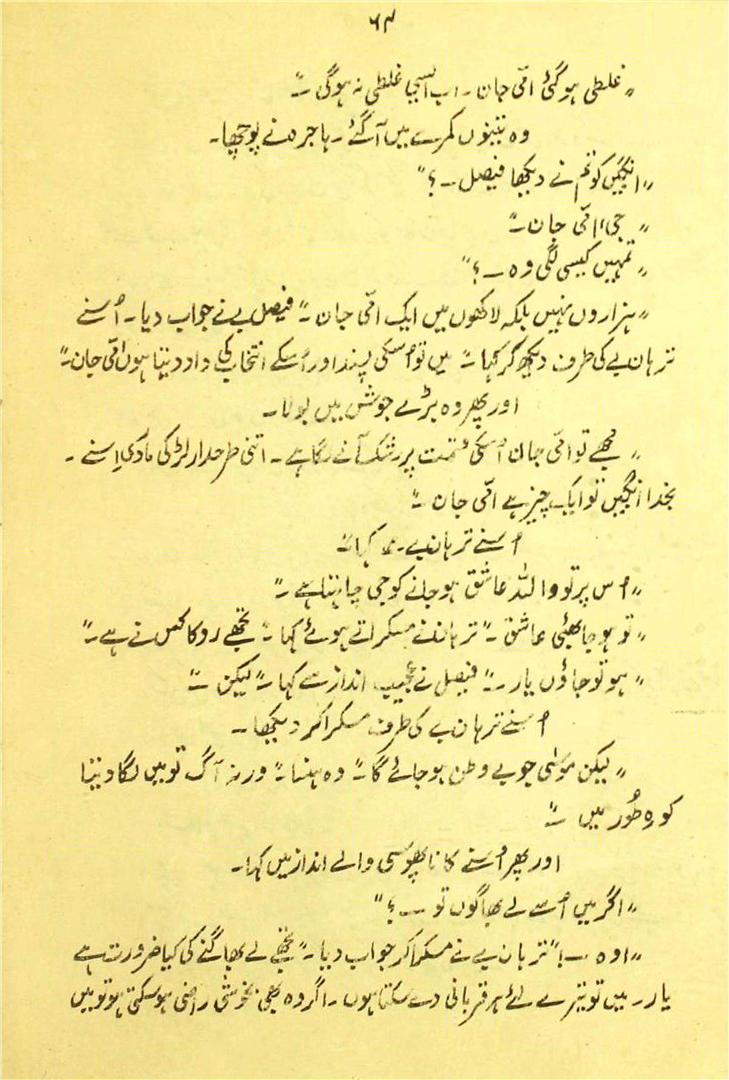 ۶۴
"غلطی ہو گئی امّی جان۔ اب ایسی غلطی نہ ہوگی ــ"
وہ تینوں کمرے میں آ گئے۔ ہاجرہ نے پوچھا۔
"انگبیں کو تم نے دیکھا فیصل ــ؟"
"جی امّی جان ــ"
"تمہیں کیسی لگی وہ ــ؟"
"ہزاروں نہیں بلکہ لاکھوں میں ایک امّی جان ــ" فیصل نے جواب دیا۔ اُسنے
کی طرف دیکھ کر کہا ــ" میں تو اُسکی پسند اور اُسکے انتخاب کی داد دیتا ہوں امّی جان ــ"
اور پھر وہ بڑے جوش میں بولا۔
"مجھے تو امّی جان اُسکی قسمت پر رشک آنے لگا ہے۔ اتنی طرحدار لڑکی ماری اِسنے۔
بخدا انگبیں تو ایک چیز ہے امّی جان ــ"
اُسنے سے کہا ــ
"اُس پر تو واللہ عاشق ہو جانے کو جی چاہتا ہے ــ"
"تو ہو جا بھئی عاشق ــ" نے مسکراتے ہوئے کہا ــ" تجھے روکا کس نے ہے ــ"
"ہو تو جاؤں یار ــ" فیصل نے عجیب انداز سے کہا ــ" لیکن ــ"
اُسنے کی طرف مسکرا کر دیکھا۔
"لیکن موسٰی جو بے وطن ہو جائے گا ــ" وہ ہنسا ــ" ورنہ آگ تو میں لگا دیتا
کوہِ طُور میں ــ"
اور پھر اُسنے کانا پھوسی والے انداز میں کہا۔
"اگر میں اُسے لے بھاگوں تو ــ؟"
"اوہ ــ!" نے مسکرا کر جواب دیا ــ" تجھے لے بھاگنے کی کیا ضرورت ہے
یار۔ میں تو تیرے لئے ہر قربانی دے سکتا ہوں۔ اگر وہ بھی بخوشی راضی ہو سکتی ہو تو میں